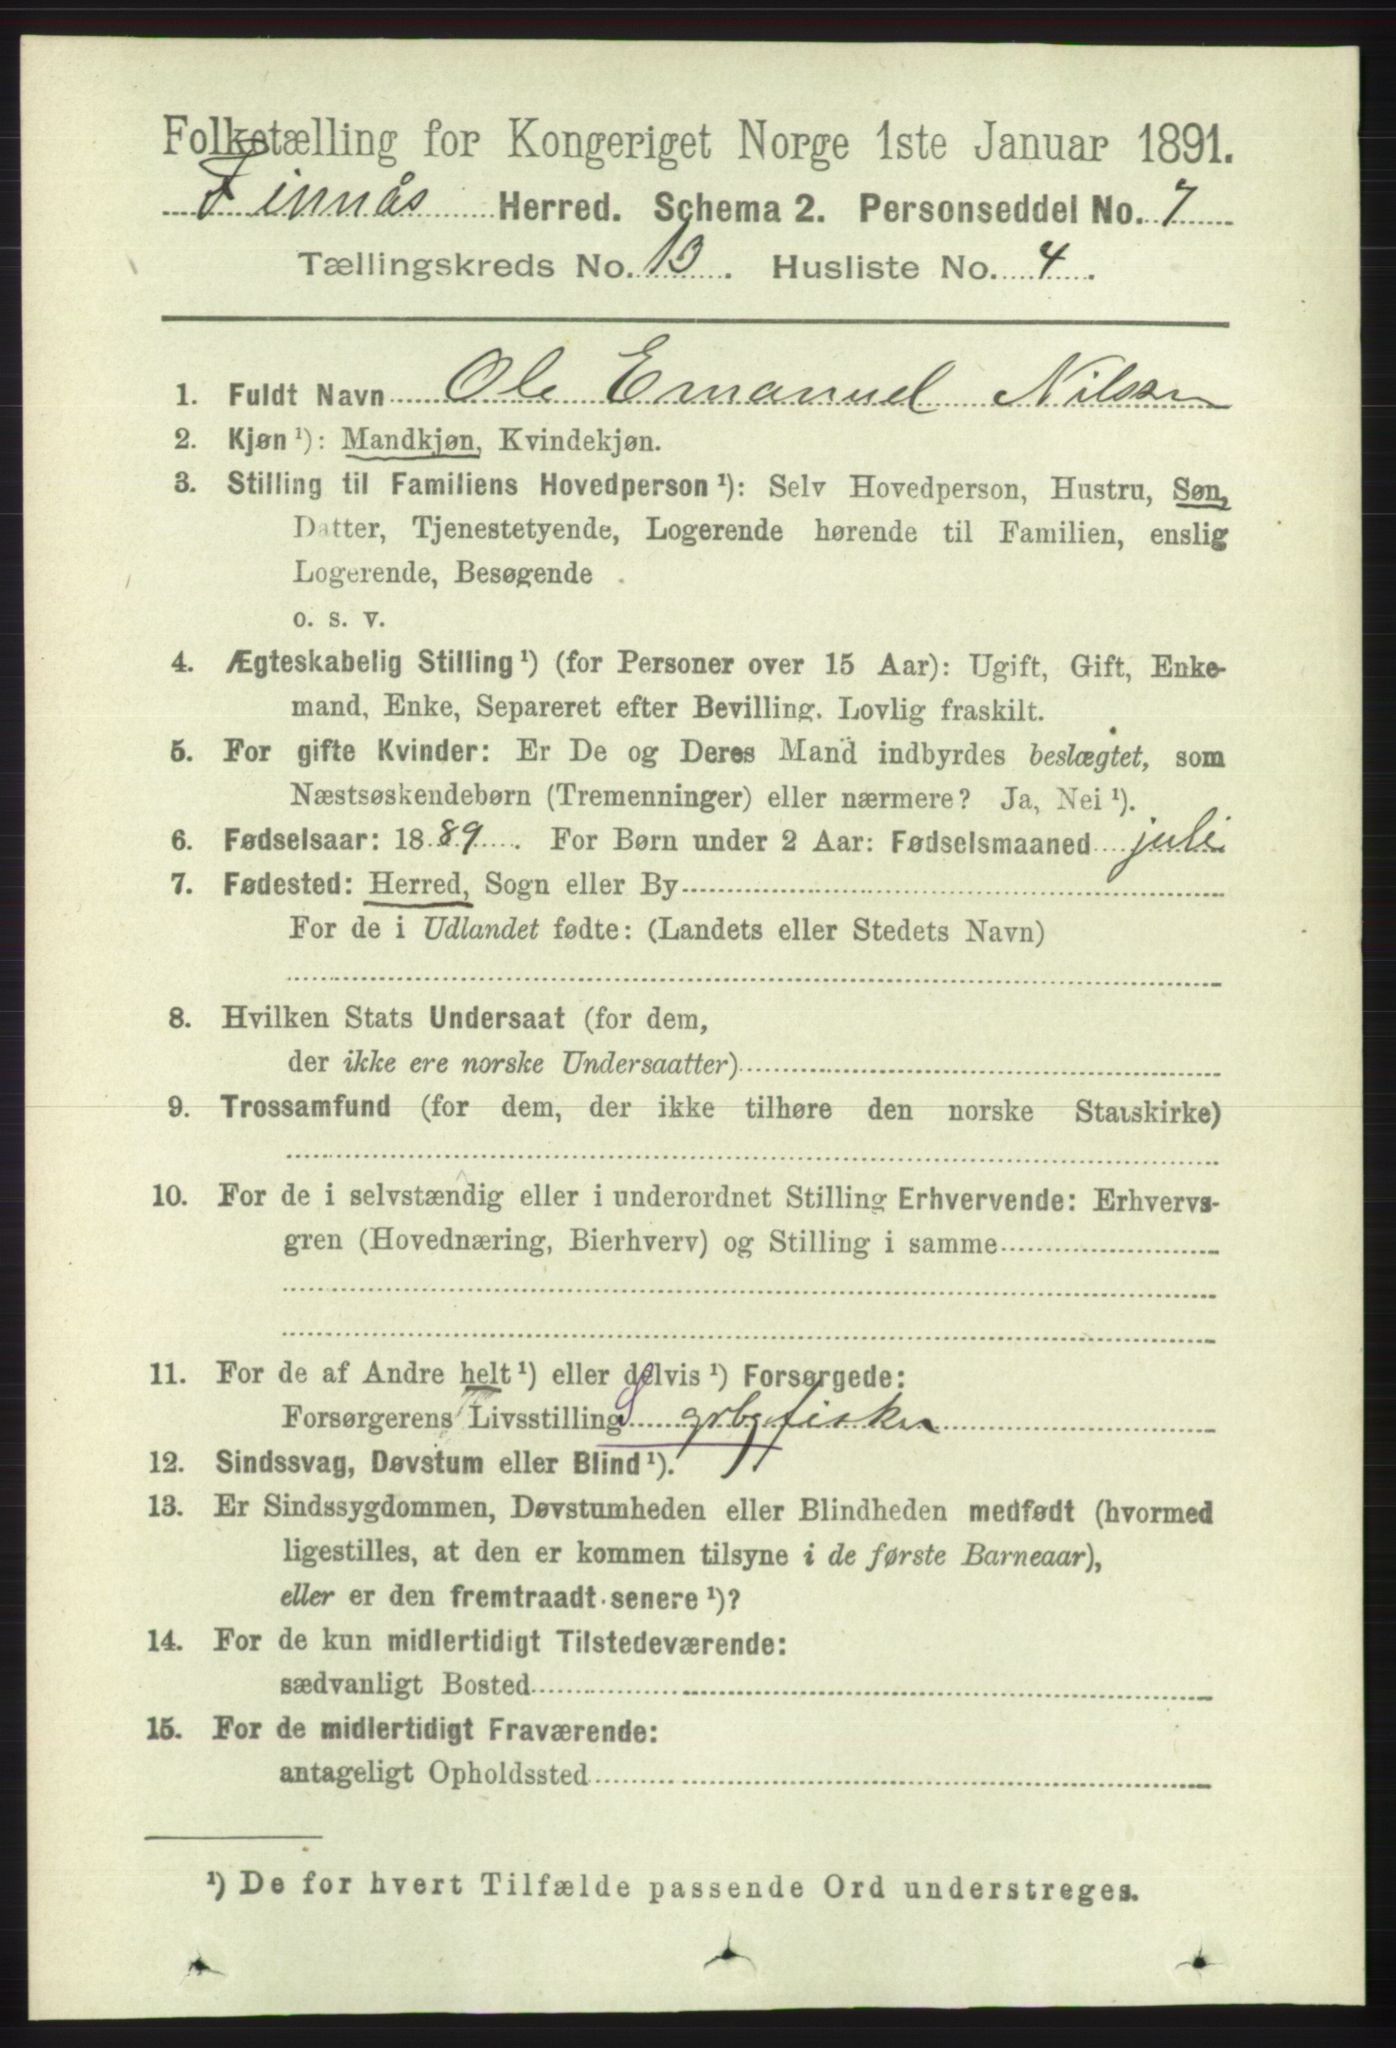 Folketælling for Kongeriget Norge 1ste Januar 1891.
Finnås Herred. Schema 2. Personseddel No. 7
Tællingskreds No. 13. Husliste No. 4.
1. Fuldt Navn Ole Emanuel Nilsen
2. Kjøn ¹): Mandkjøn, Kvindekjøn.
3. Stilling til Familiens Hovedperson ¹): Selv Hovedperson, Hustru, Søn,
Datter, Tjenestetyende, Logerende hørende til Familien, enslig
Logerende, Besøgende
o. s. v.
4. Ægteskabelig Stilling ¹) (for Personer over 15 Aar): Ugift, Gift, Enke-
mand, Enke, Separeret efter Bevilling. Lovlig fraskilt.
5. For gifte Kvinder: Er De og Deres Mand indbyrdes beslægtet, som
Næstsøskendebørn (Tremenninger) eller nærmere? Ja, Nei ¹).
6. Fødselsaar: 1889. For Børn under 2 Aar: Fødselsmaaned juli
7. Fødested: Herred, Sogn eller By
For de i Udlandet fødte: (Landets eller Stedets Navn)
8. Hvilken Stats Undersaat (for dem,
der ikke ere norske Undersaatter)
9. Trossamfund (for dem, der ikke tilhøre den norske Statskirke)
10. For de i selvstændig eller i underordnet Stilling Erhvervende: Erhvervs-
gren (Hovednæring, Bierhverv) og Stilling i samme
11. For de af Andre helt ¹) eller delvis ¹) Forsørgede:
Forsørgerens Livsstilling S grbr fisker
12. Sindssvag, Døvstum eller Blind ¹).
13. Er Sindssygdommen, Døvstumheden eller Blindheden medfødt (hvormed
ligestilles, at den er kommen tilsyne i de første Barneaar),
eller er den fremtraadt senere ¹)?
14. For de kun midlertidigt Tilstedeværende:
sædvanligt Bosted
15. For de midlertidigt Fraværende:
antageligt Opholdssted
¹) De for hvert Tilfælde passende Ord understreges.